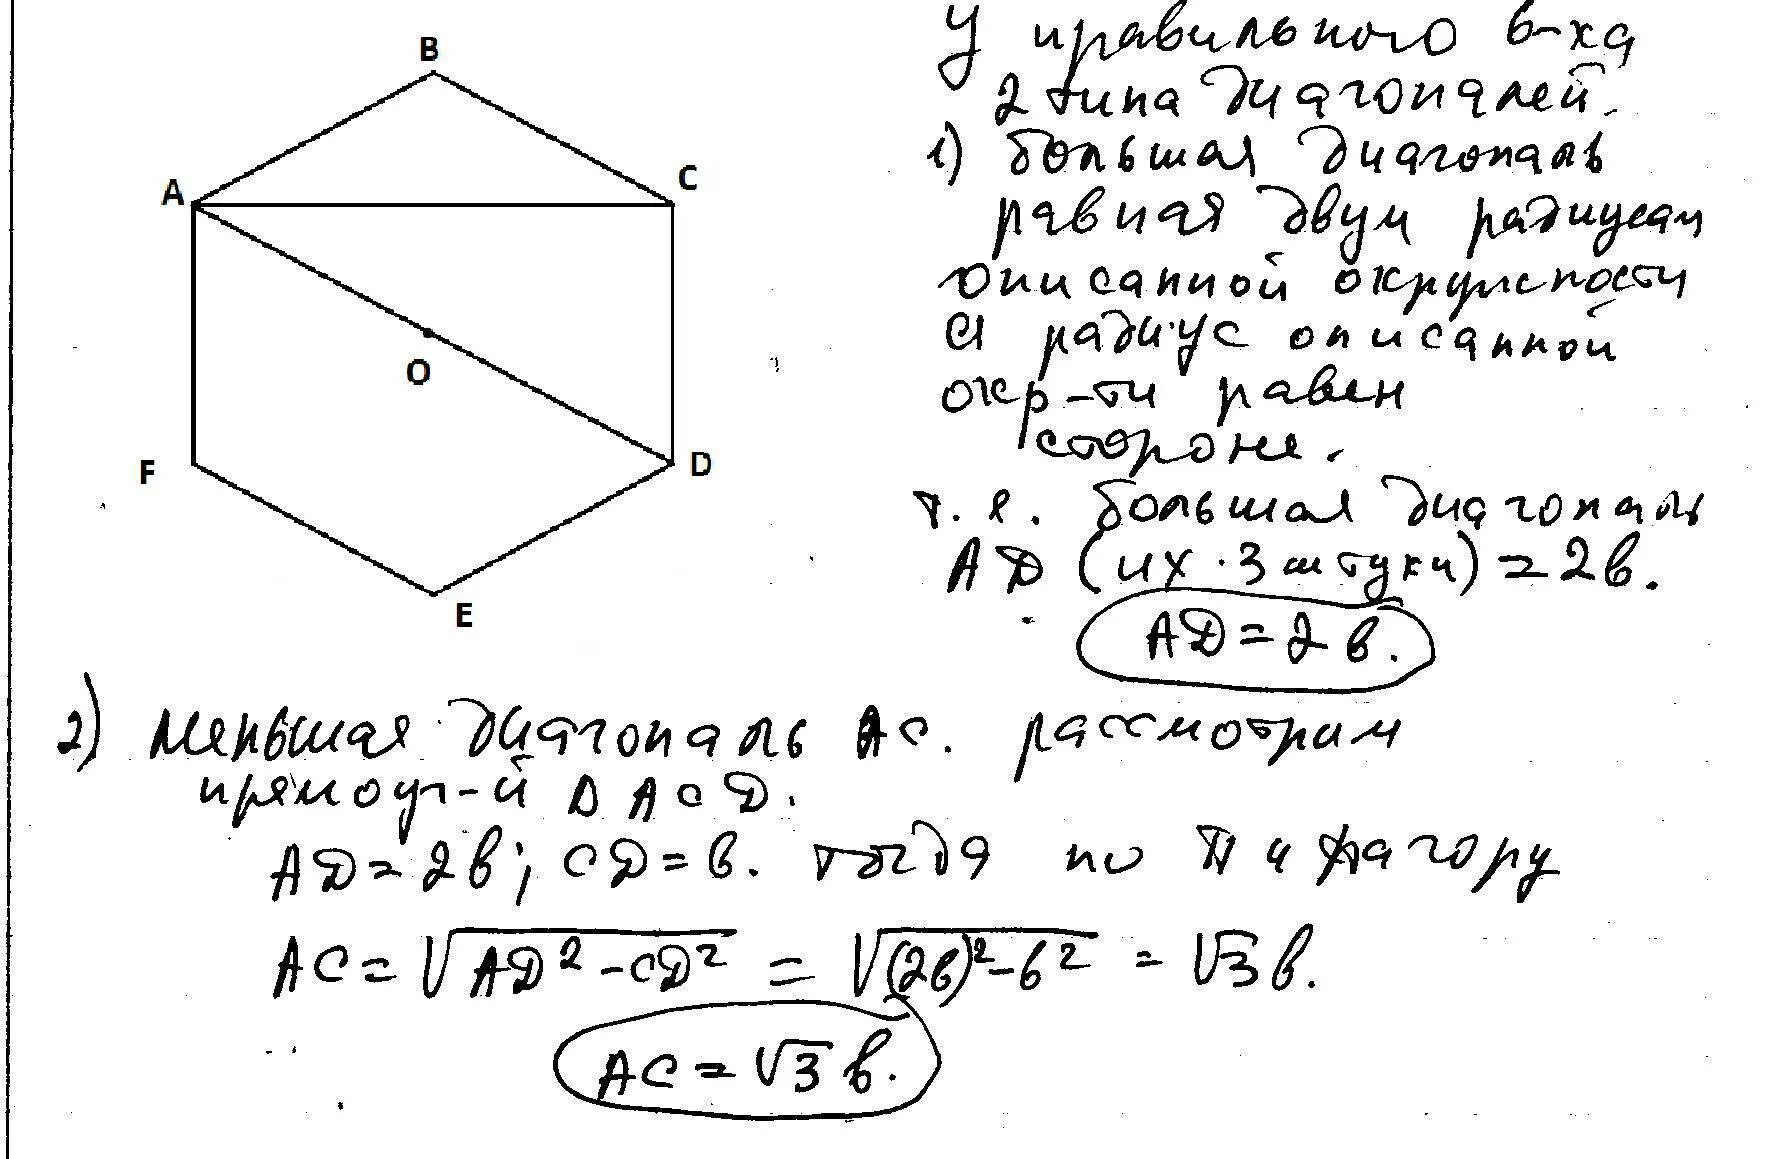 B
C
A
O
F
D
E
У правильного 6-ха
2 типа диагоналей.
1) большая диагональ
равная двум радиусам
описанной окружности
а радиус описанной
окр-ти равен
стороне.
т.е. большая диагональ
AD (их 3 штуки) = 2в.
AD = 2в.
2) меньшая диагональ AC. рассмотрим
прямоуг-й Δ ACD.
AD = 2в; CD = в. тогда по Пифагору
AC = √AD² - CD² = √(2в)² - в² = √3 в.
AC = √3 в.